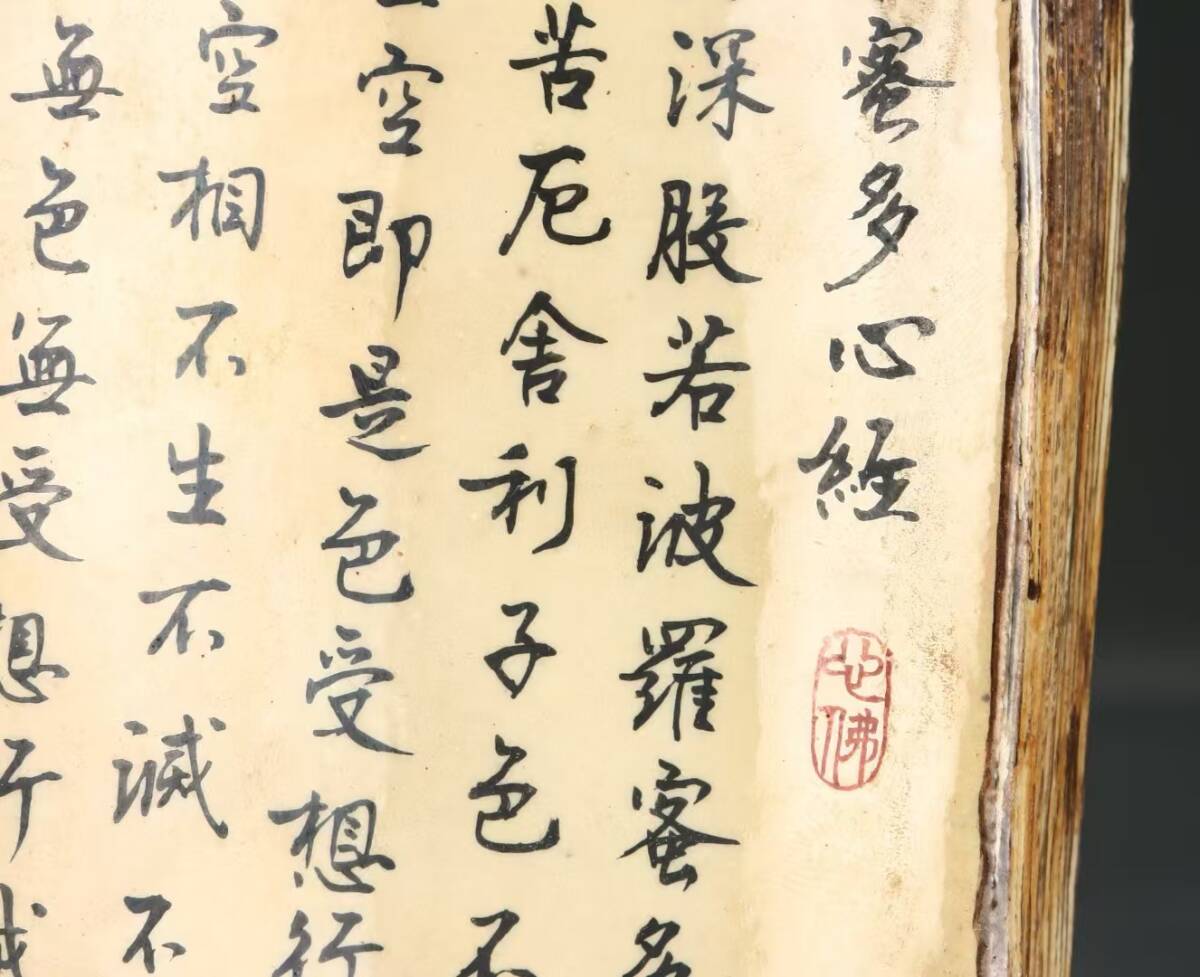 蜜多心經
深般若波羅蜜多
苦厄舍利子色不
空即是色受想行
空相不生不滅不
無色無受想行